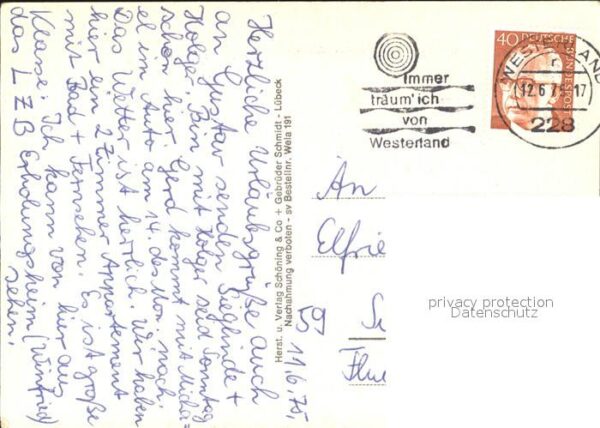 Herzliche Urlaubsgrüße auch
an Gustav senden Sieglinde +
Holger. Bin mit Holger seid Sonntag
schon hier. Gerd kommt mit Micha=
el im Auto am 14. des Mon. nach.
Das Wetter ist herrlich. Wir haben
hier ein 2 Zimmer Appartement
mit Bad + Fernsehen. Es ist große
Klasse. Ich kann von hier aus
das LZB Erholungsheim (Winfried)
sehen.
11.6.75,
Herst. u. Verlag Schöning & Co + Gebrüder Schmidt - Lübeck
Nachahmung verboten - sv Bestellnr. Wela 191
Immer
träum' ich
von
Westerland
40 DEUTSCHE BUNDESPOST
WESTERLAND
12.6.7 17
228
An
Elfrie
59 Se
Flu
privacy protection
Datenschutz